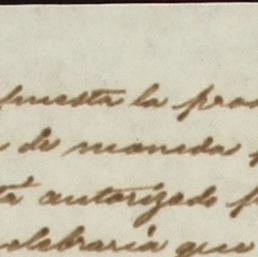 puesta la pro
de moneda
tá autorizado
lebraría que